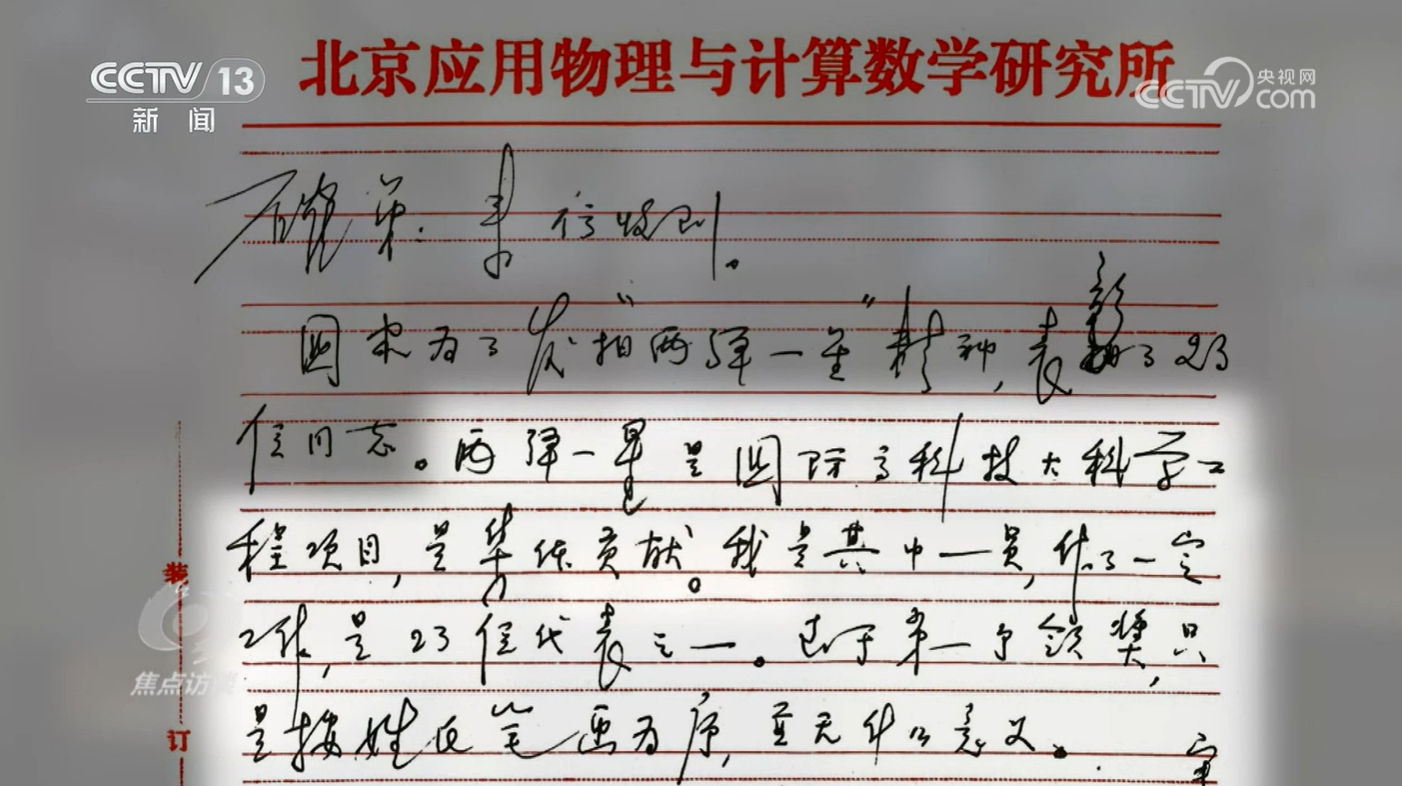 CCTV 13
新闻
北京应用物理与计算数学研究所
央视网
CCTV.com
弟: 来信收到。
国家为了发扬"两弹一星"精神,表彰了23
位同志。两弹一星是国际高科技大科学工
程项目,是集体贡献。我是其中一员,做了一定
工作,是23位代表之一。至于第一个领奖,只
是按姓氏笔画为序,并无什么意义。
装
焦点访谈
订